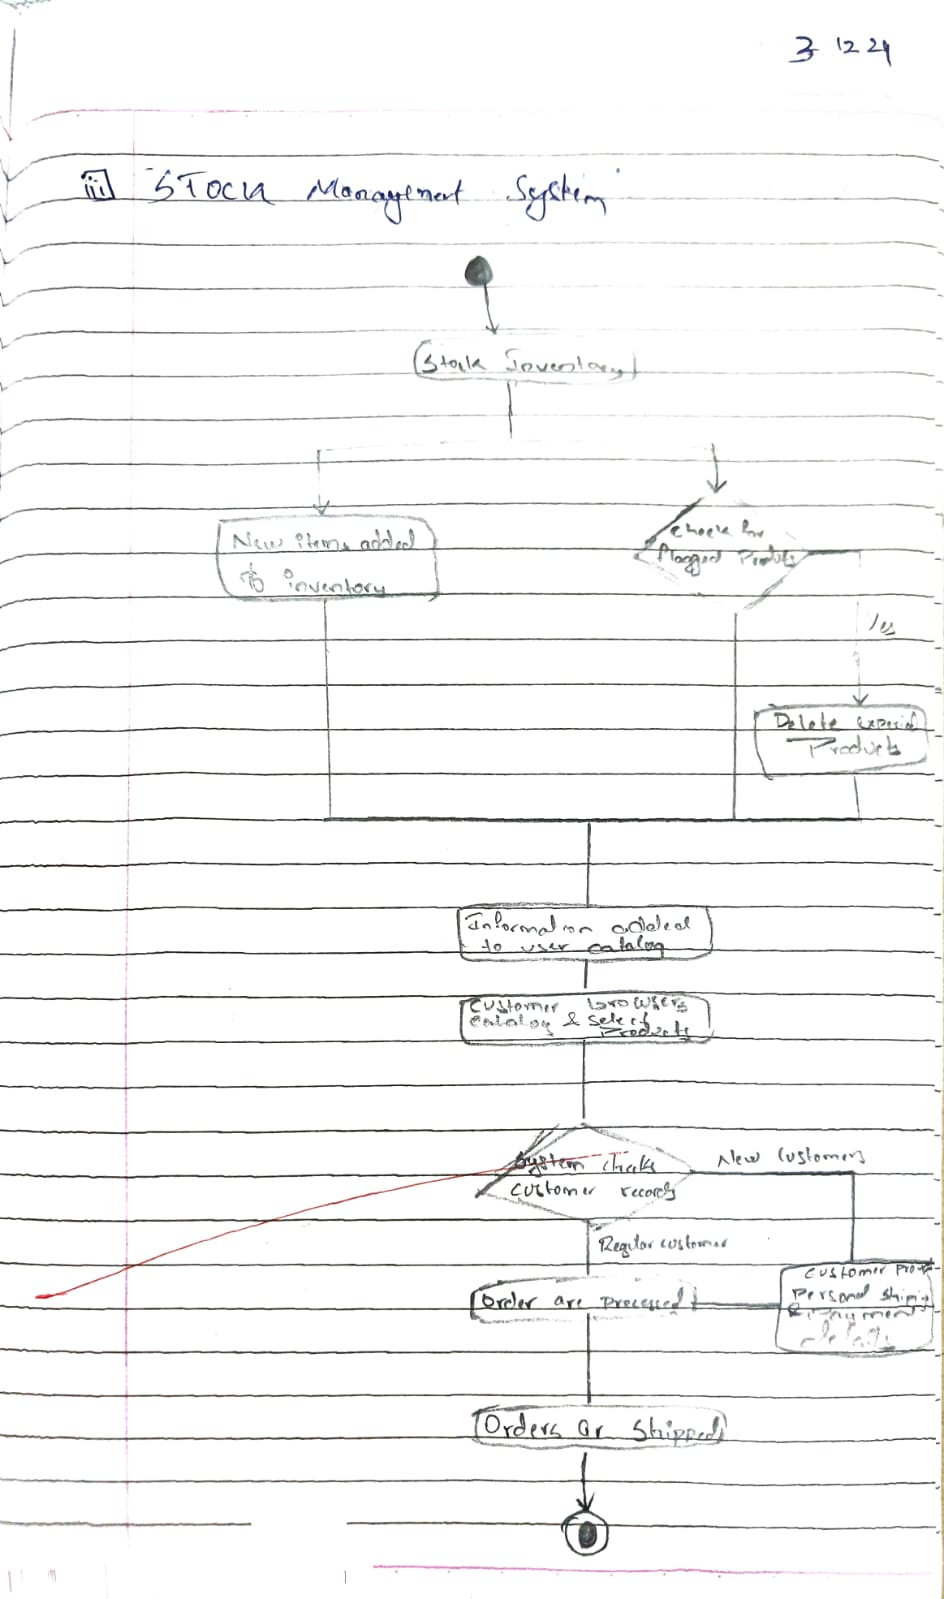 3 12 24
iii "Stock Management System"
Stock Inventory
New items added
to inventory
Check for
flagged Products
Yes
Delete
Products
Information added
to user catalog
Customer browsers
catalog & select
Products
System checks
customer records
New Customers
Regular customer
Order are processed
Customer
Personal
& Payment
details
Orders ar Shipped